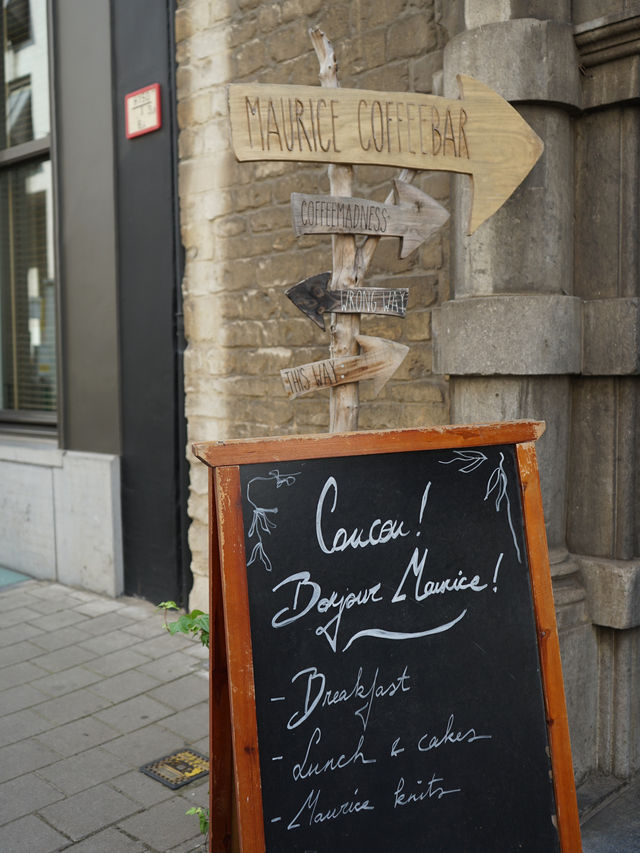 MAURICE COFFEEBAR
COFFEEMADNESS
WRONG WAY
THIS WAY
Coucou!
Bonjour Maurice!
- Breakfast
- Lunch & cakes
- Maurice knits